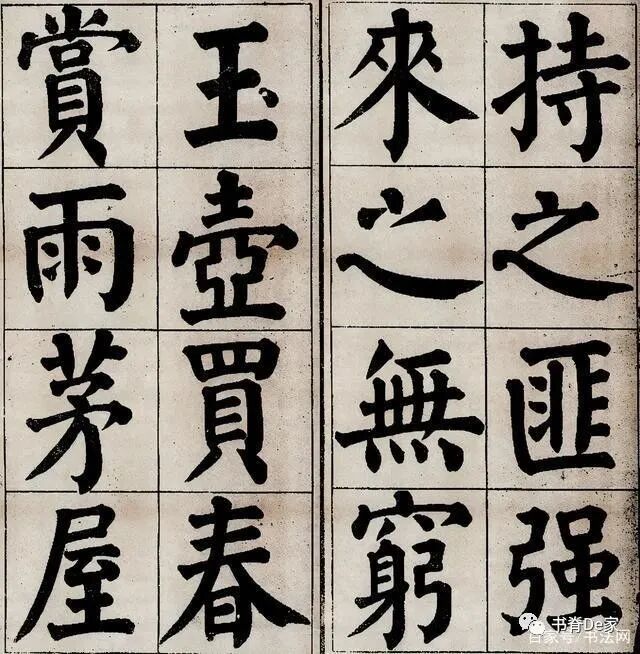 持之匪强
來之無窮
玉壺買春
賞雨茅屋
书脊De家
百家号/书法网